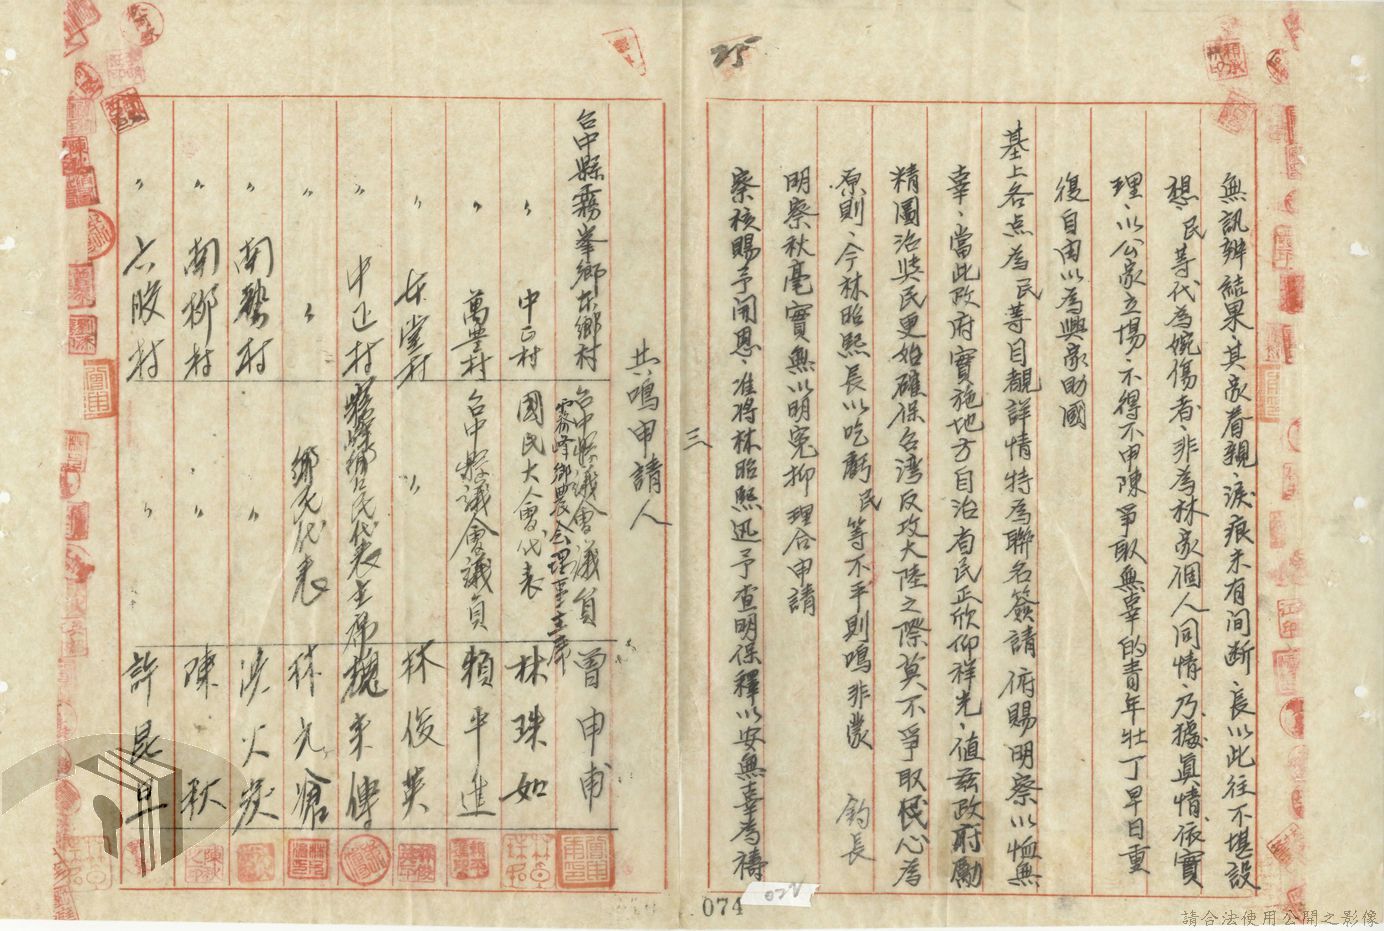 無訊辦結果其家眷親淚痕未有间断長以此往不堪設
想民等代為婉傷者非為林家個人同情乃據真情依實
理以公家立場不得不申陳爭取無辜的青年壯丁早日重
復自由以為興家助國
基上各点為民等目覩詳情特為聯名簽請俯賜明察以恤無
辜當此政府實施地方自治省民正欣仰祥光值茲政府勵
精圖治與民更始確保台湾反攻大陸之際莫不爭取民心為
原則今林昭熙長以吃虧民等不平則鳴非蒙 鈞長
明察秋毫實無以明冤抑理合申請
察核賜予開恩准將林昭熙迅予查明保釋以安無辜為禱
三
共鳴申請人
台中縣霧峯鄉本鄉村 台中縣議會議員 霧峰鄉農会理事主席 曾申甫
〃 中正村 國民大会代表 林珠如
〃 萬豐村 台中縣議會議員 賴平進
〃 本堂村 〃 林俊英
〃 中正村 霧峰鄉民代表主席 魏来傳
〃 〃 鄉民代表 林允滄
〃 南勢村 〃 洪火炭
〃 南柳村 〃 陳秋
〃 六股村 〃 許昆旦
25
074
024
請合法使用公開之影像